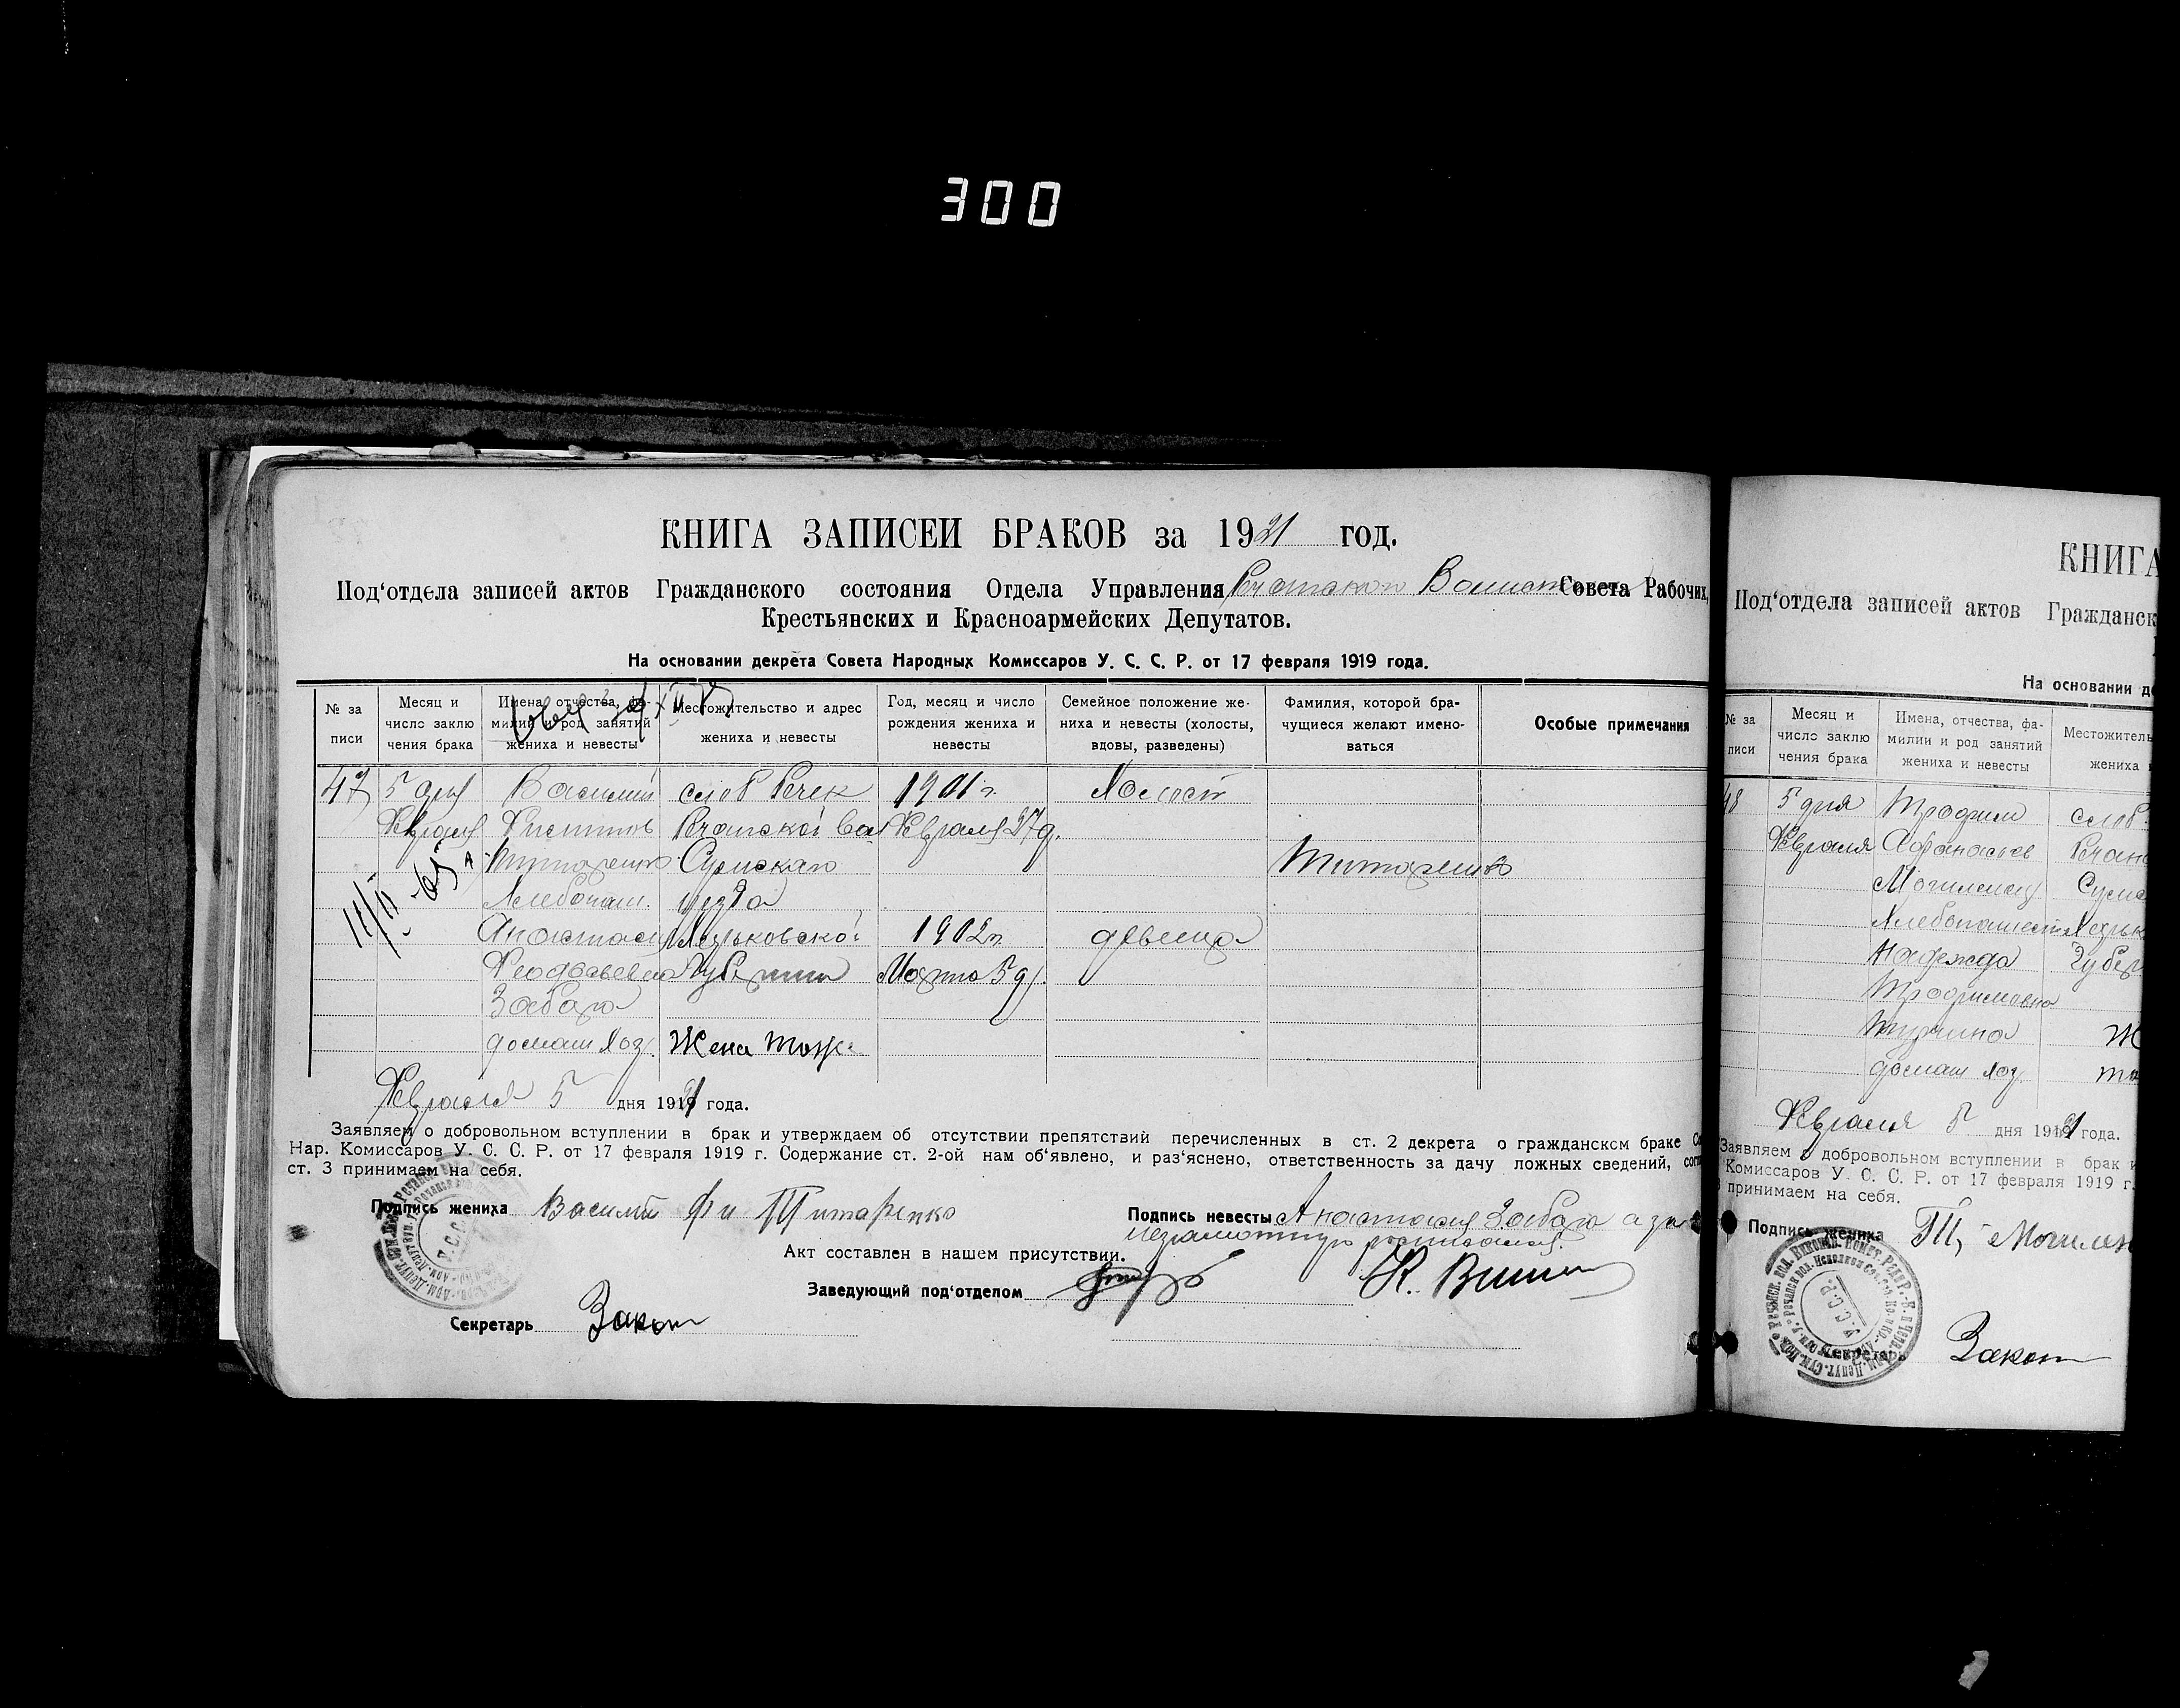 300
КНИГА ЗАПИСЕИ БРАКОВ за 1921 год.
Под‘отдела записей актов Гражданского состояния Отдела Управления Совета Рабочих,
Крестьянских и Красноармейских Депутатов.
На основании декрета Совета Народных Комиссаров У. С. С. Р. от 17 февраля 1919 года.
№ за
писи
Месяц и
число заклю
чения брака
Имена, отчества, фа-
милии и род занятий
жениха и невесты
Местожительство и адрес
жениха и невесты
Год, месяц и число
рождения жениха и
невесты
Семейное положение же-
ниха и невесты (холосты,
вдовы, разведены)
Фамилия, которой бра-
чущиеся желают имено-
ваться
Особые примечания
47 5 дня Василий слоб Речек 1901 г. Холост
Февраля Речанской Вол Февраля 27 д.
Титаренко Сумскаго Титаренко
Хлебопаш. уезда
Анастасия Харьковской 1902 г. девица
Губернии Марта 5 д.
Забара
домаш хоз. Жена тоже
11/II - 65
Февраля 5 дня 1921 года.
Заявляем о добровольном вступлении в брак и утверждаем об отсутствии препятствий перечисленных в ст. 2 декрета о гражданском браке
Нар. Комиссаров У. С. С. Р. от 17 февраля 1919 г. Содержание ст. 2-ой нам об‘явлено, и раз‘яснено, ответственность за дачу ложных сведений,
ст. 3 принимаем на себя.
Подпись жениха Василий Фи Титаренко
Подпись невесты Анастасия Забара а за
неграмотную
Акт составлен в нашем присутствии.
Заведующий под‘отделом
Секретарь
КНИГА
Под‘отдела записей актов Гражданск
На основании де
№ за
писи
Месяц и
число заклю
чения брака
Имена, отчества, фа-
милии и род занятий
жениха и невесты
Местожитель
жениха и
48 5 дня Трофим слоб
Февраля Афанасьев Речан
Сумс
Хлебопашест Харьк
Надежда Губер
Трофимовна
Ж
домаш хоз. то
Февраля 5 дня 1921 года.
Заявляем о добровольном вступлении в брак и
Комиссаров У. С. С. Р. от 17 февраля 1919 г.
принимаем на себя.
Подпись жениха
У.С.С.Р.
Секретарь